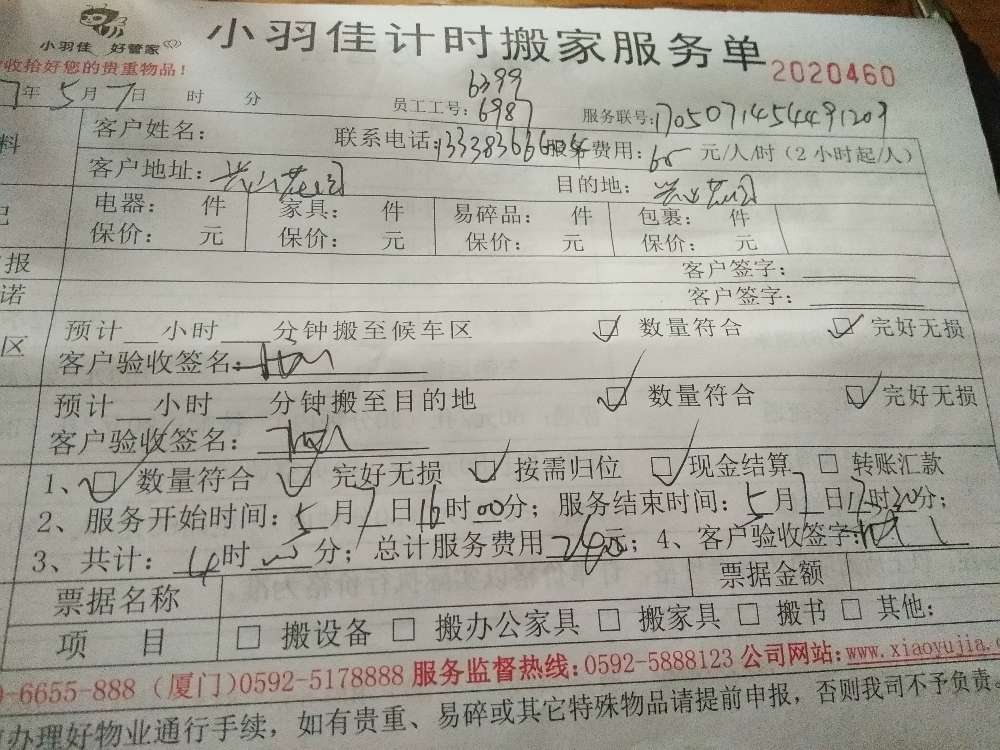 小羽佳 好管家
收拾好您的贵重物品!
小羽佳计时搬家服务单
2020460
7年5月7日 时 分
6399
员工工号: 6987
服务联号:
料
客户姓名:
联系电话:
服务费用: 元/人/时(2小时起/人)
客户地址:
目的地:
电器: 件 家具: 件 易碎品: 件 包裹: 件
保价: 元 保价: 元 保价: 元 保价: 元
报
客户签字:
诺
客户签字:
区
预计 小时 分钟搬至候车区 数量符合 完好无损
客户验收签名:
预计 小时 分钟搬至目的地 数量符合 完好无损
客户验收签名:
1、 数量符合 完好无损 按需归位 现金结算 转账汇款
2、服务开始时间:5月7日16时00分; 服务结束时间:5月7日17时 分;
3、共计: 4时 分; 总计服务费用 元; 4、客户验收签字:
票据名称
票据金额
项 目
搬设备 搬办公家具 搬家具 搬书 其他:
-6655-888(厦门)0592-5178888 服务监督热线:0592-5888123 公司网站:www.xiaoyujia.c
办理好物业通行手续,如有贵重、易碎或其它特殊物品请提前申报,否则我司不予负责。